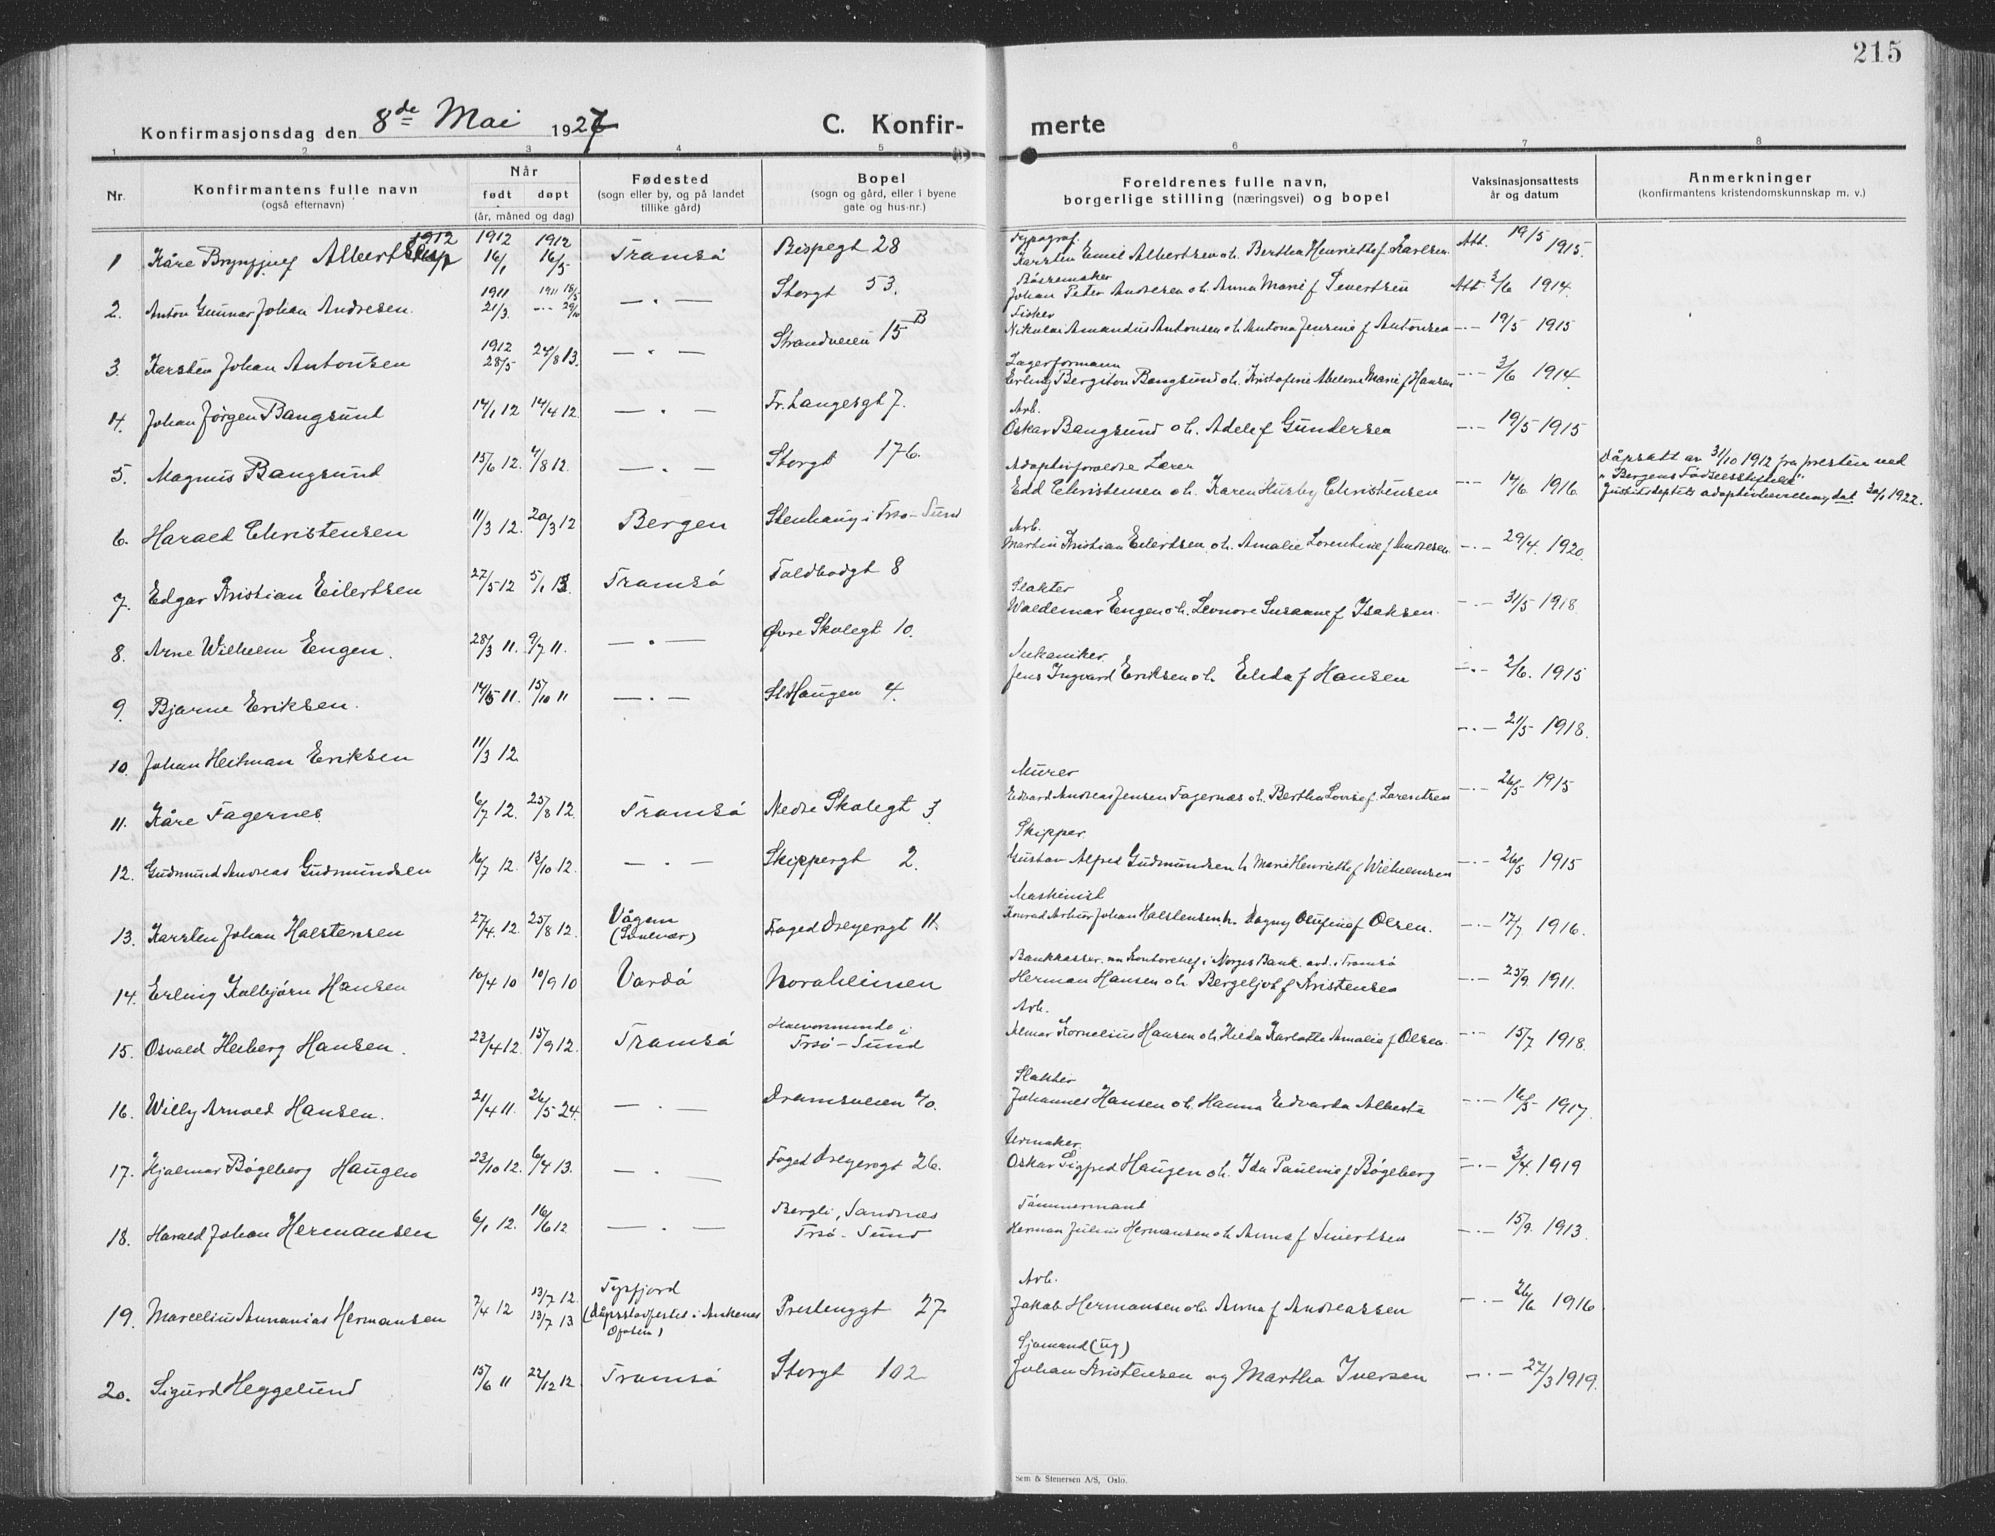 215
Konfirmasjonsdag den 8de Mai 1927
C. Konfirmerte
1 2 3 4 5 6 7 8
Nr. Konfirmantens fulle navn (også efternavn) Når født døpt (år, måned og dag) Fødested (sogn eller by, og på landet tillike gård) Bopel (sogn og gård, eller i byene gate og hus-nr.) Foreldrenes fulle navn, borgerlige stilling (næringsvei) og bopel Vaksinasjonsattests år og datum Anmerkninger (konfirmantens kristendomskunnskap m. v.)
1 Kåre Brynjulf Albertsen 1912 16/1 1912 16/5 Tromsö Bispegt 28 Typograf Karsten Emil Albertsen o h. Bertha Henriette f Karlsen Att. 19/5 1915.
2. Anton Gunnar Johan Andresen. 1911 21/3. 1911 — . — Storgt 53. Bössemaker Johan Peter Andresen o h. Anna Marie f Sivertsen Att 3/6 1914.
3. Karsten Johan Antonsen 1912 28/5 24/8 13. — . — Strandveien 15 B Fisker Nikolai Amandus Antonsen o h. Antona Jensine f Antonsen — . — 19/5 1915
4. Johan Jørgen Bangsund 14/1 12 14/4 12 — . — Fr. Langesgt 7. Lagerformann Erling Bergiton Bangsund o h. Kristofine Abelone Marie f Hansen — . — 3/6 1914.
5. Magnus Bangsund 15/6 12. 4/8 12. — . — Storgt 176. Arb. Oskar Bangsund o h. Adele f Gundersen — . — 19/5 1915
6. Harald Christensen 11/3 12. 20/3 12 Bergen Stenhaug i Trsö-Sund Adoptivforeldre Lærer Edd Christensen o h. Karen Husby Christensen — . — 14/6 1916. Dåpsatt av 31/10 1912 fra presten ved "Bergens Fødselsstiftelse" Justisdeptets adoptivbevilling dat 30/1 1922.
7. Edgar Kristian Eilertsen 27/5 12 5/1 13. Tromsö Toldbodgt 8 Arb. Martin Kristian Eilertsen o h. Amalie Lorentine f Andresen — . — 29/4. 1920
8. Arne Wilhelm Engen. 28/3 11. 9/7 11. — . — Øvre Skolegt 10. Slakter Waldemar Engen o h. Leonore Susanne f Isaksen. — . — 31/5 1918.
9. Bjarne Eriksen. 14/5 11. 15/10 11 — . — St.Haugen 4. Mekaniker Jens Ingvard Eriksen o h. Elida f Hansen — . — 2/6. 1915
10. Johan Heitman Eriksen 11/3 12. — . — 21/5 1918.
11. Kåre Fagernes 6/7 12. 25/8 12. Tromsö Nedre Skolegt 3. Murer Edvard Andreas Jensen Fagernes o h. Bertha Lovise f. Lorentsen — . — 26/5 1915
12. Gudmund Andreas Gudmundsen 16/7 12. 13/10 12. — . — Skippergt 2. Skipper Gustav Alfred Gudmundsen h Marie Henriette f Wilhelmsen — . — 26/5 1915
13. Karsten Johan Halstensen 27/4. 12. 25/8 12. Vågan Foged Dreyersgt 11. Maskinist Konrad Arthur Johan Halstensen h. Dagny Olufine f Olsen. — . — 17/7 1916.
14. Erling Kolbjørn Hansen 10/4 10 10/9 10 Vardö Noraheimen Bankkasser. nu Kontorchef i Norges Bank. avd. i Tromsö Herman Hansen o h. Bergeljot f Kristensen — . — 25/9. 1911.
15. Osvald Heiberg Hansen. 22/4 12. 15/9 12. Tromsö Halvorsminde i Trsö-Sund Arb. Almar Kornelius Hansen o h. Hilda Karlotte Amalie f Olsen. — . — 15/7 1918.
16. Willy Arnold Hansen. 21/4 11. 26/5 24. — . — Dramsveien 40. Slakter Johannes Hansen o h. Hanna Edvarda Alberta — . — 16/5 1917.
17. Hjalmar Bögeberg Haugen 23/10 12. 6/4 13. — . — Foged Dreyersgt 26. Urmaker Oskar Sigfred Haugen o h. Ida Pauline f Bögeberg — . — 3/4. 1919
18. Harald Johan Hermansen 6/1 12. 16/6 12 — . — Bergli, Sandnes Trsö-Sund Tömmermand Herman Julius Hermansen o h. Anna f Sivertsen — . — 15/9. 1913.
19. Marcelius Annanias Hermansen 7/4 12 13/7 12. 13/7 13 Typfjord (dåpstadfestet i Ankenes Ofoten) Prestenggt 27 Arb. Jakob Hermansen o h. Anna f Andreassen — . — 26/6 1916
20. Sigurd Heggelund 15/6 11 22/12 12 Tromsö Storgt 102 Sjomand (ug) Johan Kristensen og Martha Iversen — . — 27/3 1919.
Sem & Stenersen A/S, Oslo.